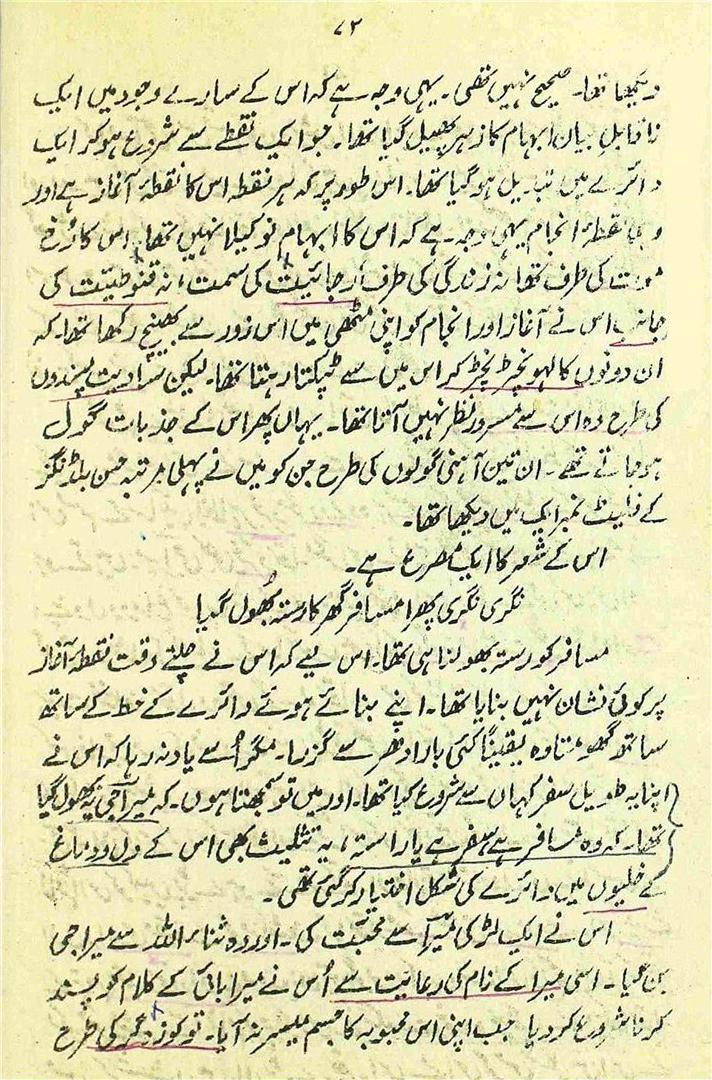 ۷۲
دیکھا تھا۔ صحیح نہیں تھی۔ یہی وجہ ہے کہ اس کے سارے وجود میں ایک
ناقابلِ بیان ابہام کا زہر پھیل گیا تھا۔ جو ایک نقطے سے شروع ہو کر ایک
دائرے میں تبدیل ہو گیا تھا۔ اس طور پر کہ ہر نقطہ اس کا نقطۂ آغاز ہے اور
وہی نقطۂ انجام یہی وجہ ہے کہ اس کا ابہام نوکیلا نہیں تھا۔ اس کا رُخ
موت کی طرف تھا نہ زندگی کی طرف، رجائیت کی سمت، نہ قنوطیت کی
جانب اس نے آغاز اور انجام کو اپنی مٹھی میں اس زور سے بھینچ رکھا تھا۔ کہ
ان دونوں کا لہو نچڑ نچڑ کر اس میں سے ٹپکتا رہتا تھا۔ لیکن سادیت پسندوں
کی طرح وہ اس سے مسرور نظر نہیں آتا تھا۔ یہاں پھر اس کے جذبات گول
ہو جاتے تھے۔ ان تین آہنی گولوں کی طرح جن کو میں نے پہلی مرتبہ حسن بلڈنگز
کے فلیٹ نمبر ایک میں دیکھا تھا۔
اس کے شعر کا ایک مصرع ہے۔
نگری نگری پھرا مسافر گھر کا رستہ بھُول گیا
مسافر کو رستہ بھولنا ہی تھا۔ اس لیے کہ اس نے چلتے وقت نقطۂ آغاز
پر کوئی نشان نہیں بنایا تھا۔ اپنے بنائے ہوئے دائرے کے خط کے ساتھ
ساتھ گھومتا وہ یقیناً کئی بار ادھر سے گزرا۔ مگر اُسے یاد نہ رہا کہ اس نے
اپنا یہ طویل سفر کہاں سے شروع کیا تھا۔ اور میں تو سمجھتا ہوں۔ کہ میرا جی یہ بھول گیا
تھا۔ کہ وہ مسافر ہے سفر ہے یا راستہ، یہ تثلیث بھی اس کے دل و دماغ
کے خلیوں میں دائرے کی شکل اختیار کر گئی تھی۔
اس نے ایک لڑکی میرا سے محبت کی۔ اور وہ ثناء اللہ سے میرا جی
بن گیا۔ اسی میرا کے نام کی رعایت سے اُس نے میرا بائی کے کلام کو پسند
کرنا شروع کر دیا جب اپنی اس محبوبہ کا جسم میسر نہ آیا۔ تو کوزہ گر کی طرح